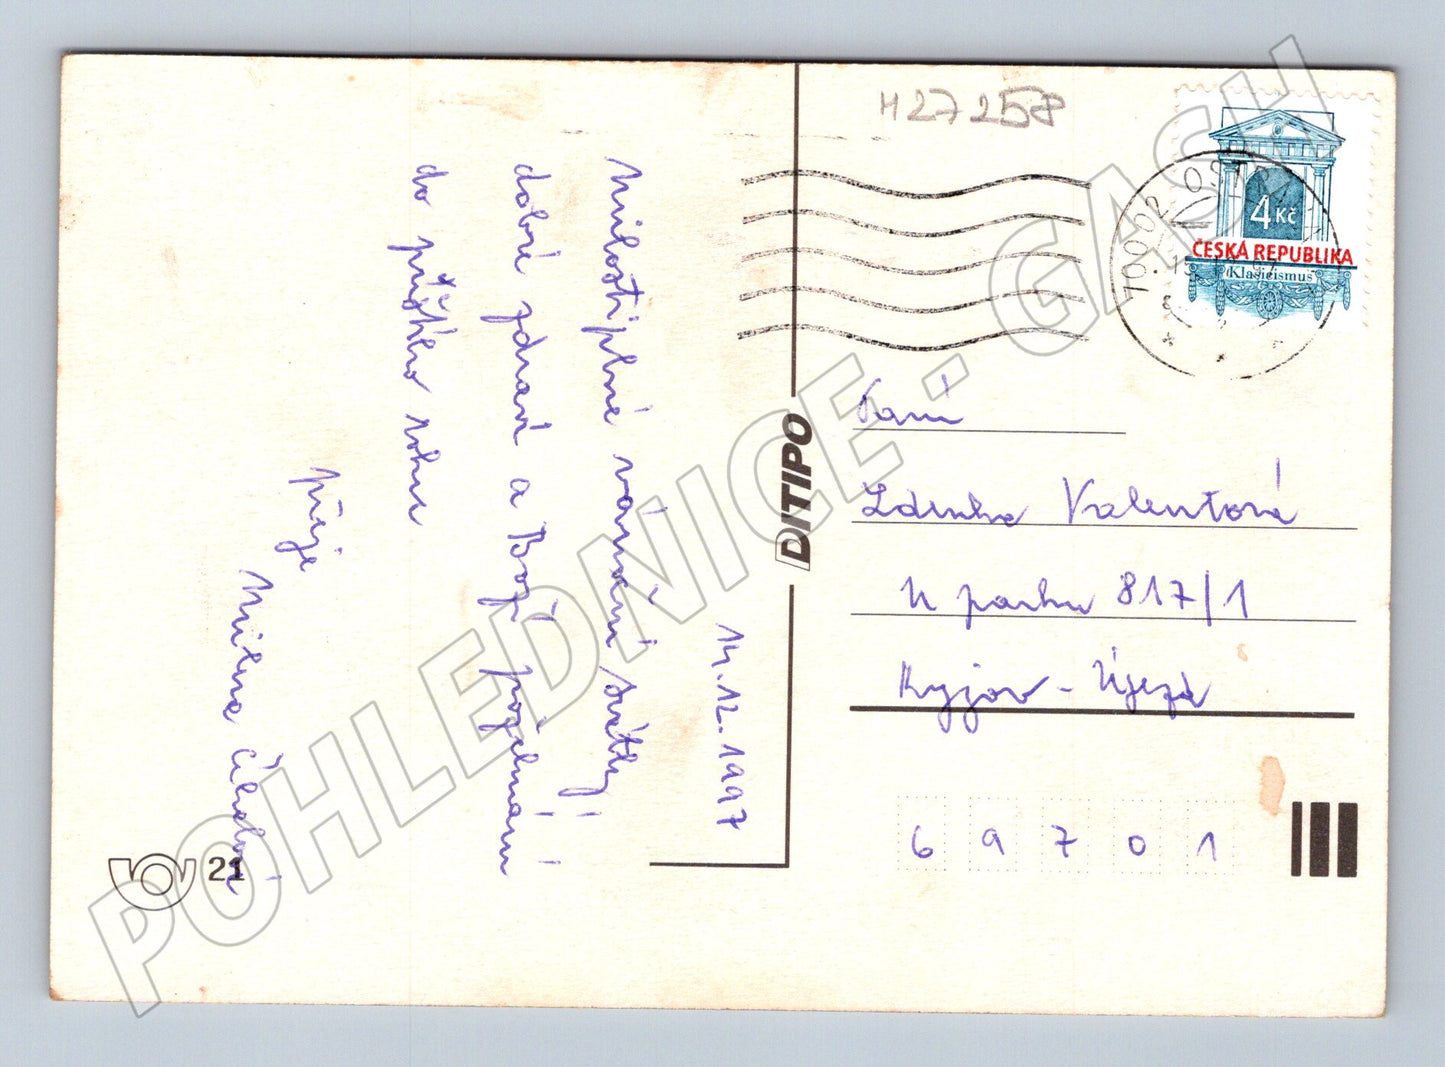 H27258
14.12.1997
Milostiplné vánoční Svátky
dobré zdraví a Boží požehnání
do příštího roku
přeje
Milena
21
DITIPO
70002 OSTRA
4 Kč
ČESKÁ REPUBLIKA
Klasicismus
Paní
Zdenka Valentová
U parku 817/1
Kyjov - Újezd
69701
POHLEDNICE - GASH